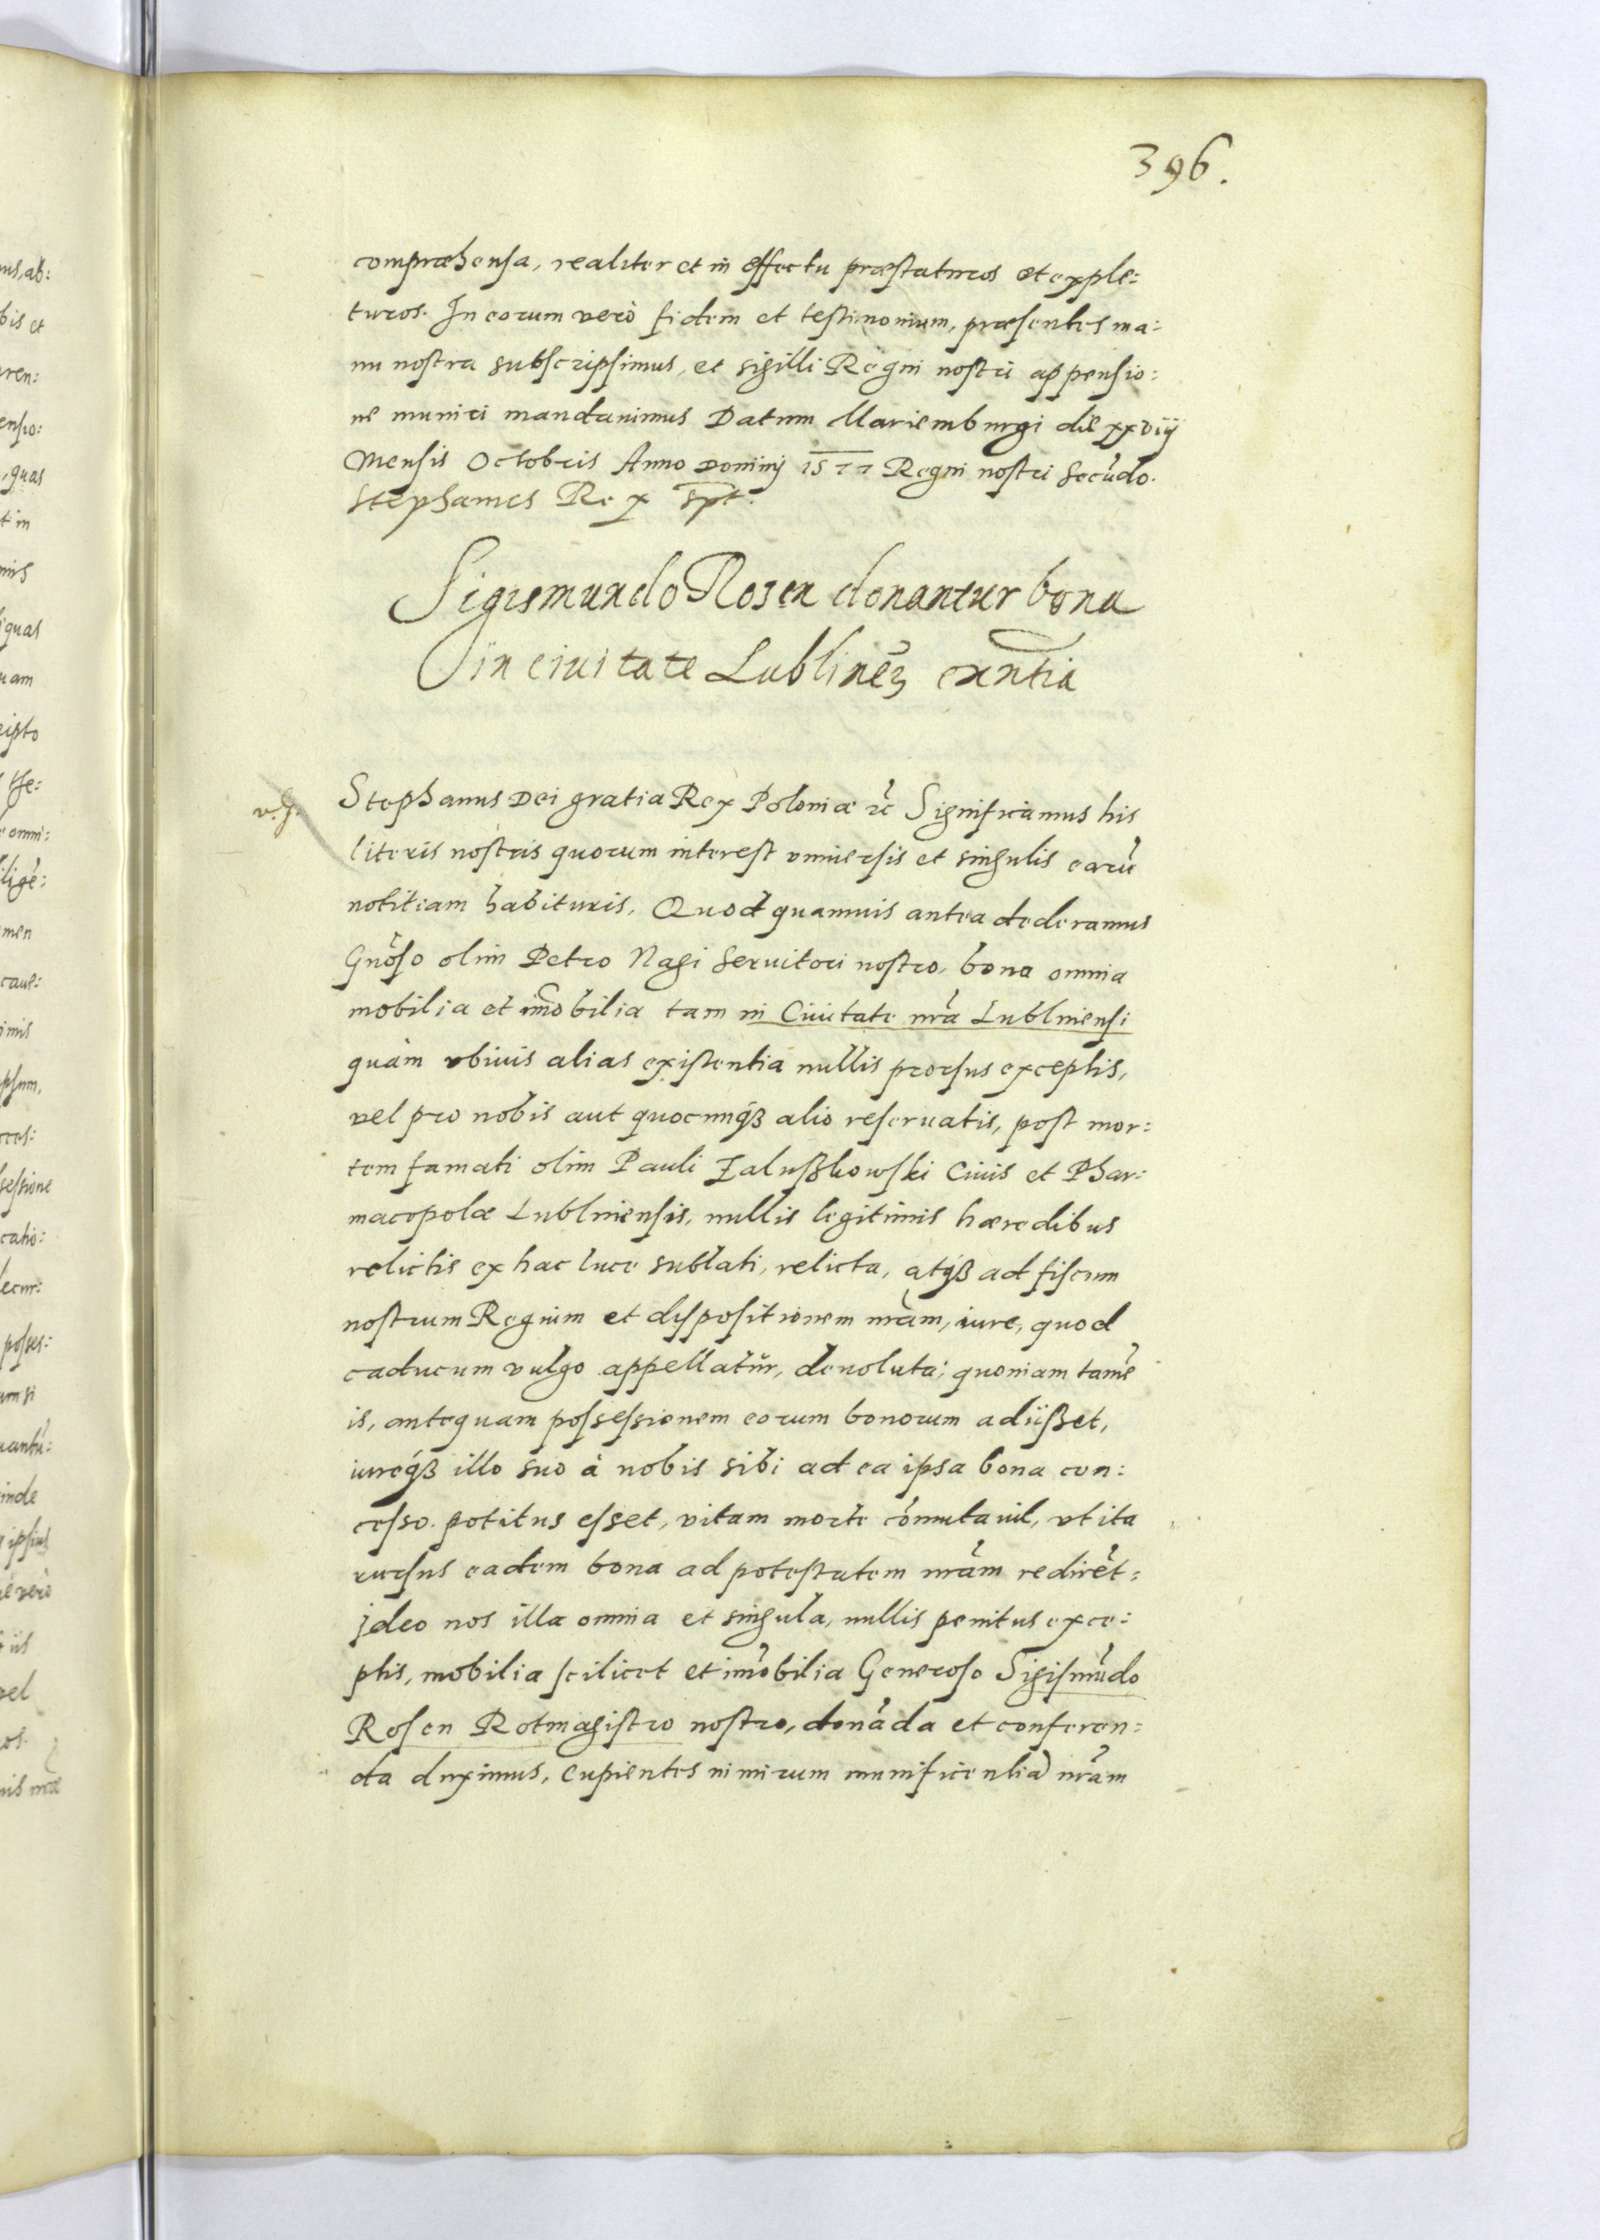 396.
compræhensa, realiter et in effectu præstaturos et exple:
turos. In eorum verò fidem et testimonium, præsentes ma:
nu nostra subscripsimus, et sigilli Regni nostri appensio:
ne muniri mandauimus Datum Mariemburgi die xxviij
Mensis Octobris Anno Dominj 1577 Regni nostri Secūdo.
Stephanus Rex spt.
Sigismundo Rosen donantur bona
in ciuitate Lublineñ exñtia
Stephanus Dei gratia Rex Poloniæ ꝛc̃ Significamus his
literis nostris quorum interest vniuersis et singulis earū
notitiam habituris, Quod quamuis antea dederamus
Gnõso olim Petro Nagi Seruitori nostro, bona omnia
mobilia et im̃obilia tam in Ciuitate nr̃a Lubliniensi
quàm vbiuis alias existentia nullis prorsus exceptis,
vel pro nobis aut quocunqꝫ alio reseruatis, post mor:
tem famati olim Pauli Zalußkowski Ciuis et Phar:
macopolæ Lubliniensis, nullis legitimis hæredibus
relictis ex hac luce sublati, relicta, atqꝫ ad fiscum
nostrum Regium et dispositionem nr̃am, iure, quod
caducum vulgo appellatur, deuoluta; quoniam tamē
is, antequam possessionem eorum bonorum adijßet,
iureqꝫ illo suo à nobis sibi ad ea ipsa bona con:
cesso potitus esset, vitam morte com̃utauit, vt ita
rursus eadem bona ad potestatem nr̃am redirēt:
jdeo nos illa omnia et singula, nullis penitus exce:
ptis, mobilia scilicet et im̃obilia Generoso Sigismūdo
Rosen Rotmagistro nostro, donāda et conferen:
da duximus, Cupientes nimirum munificentiã nr̃am